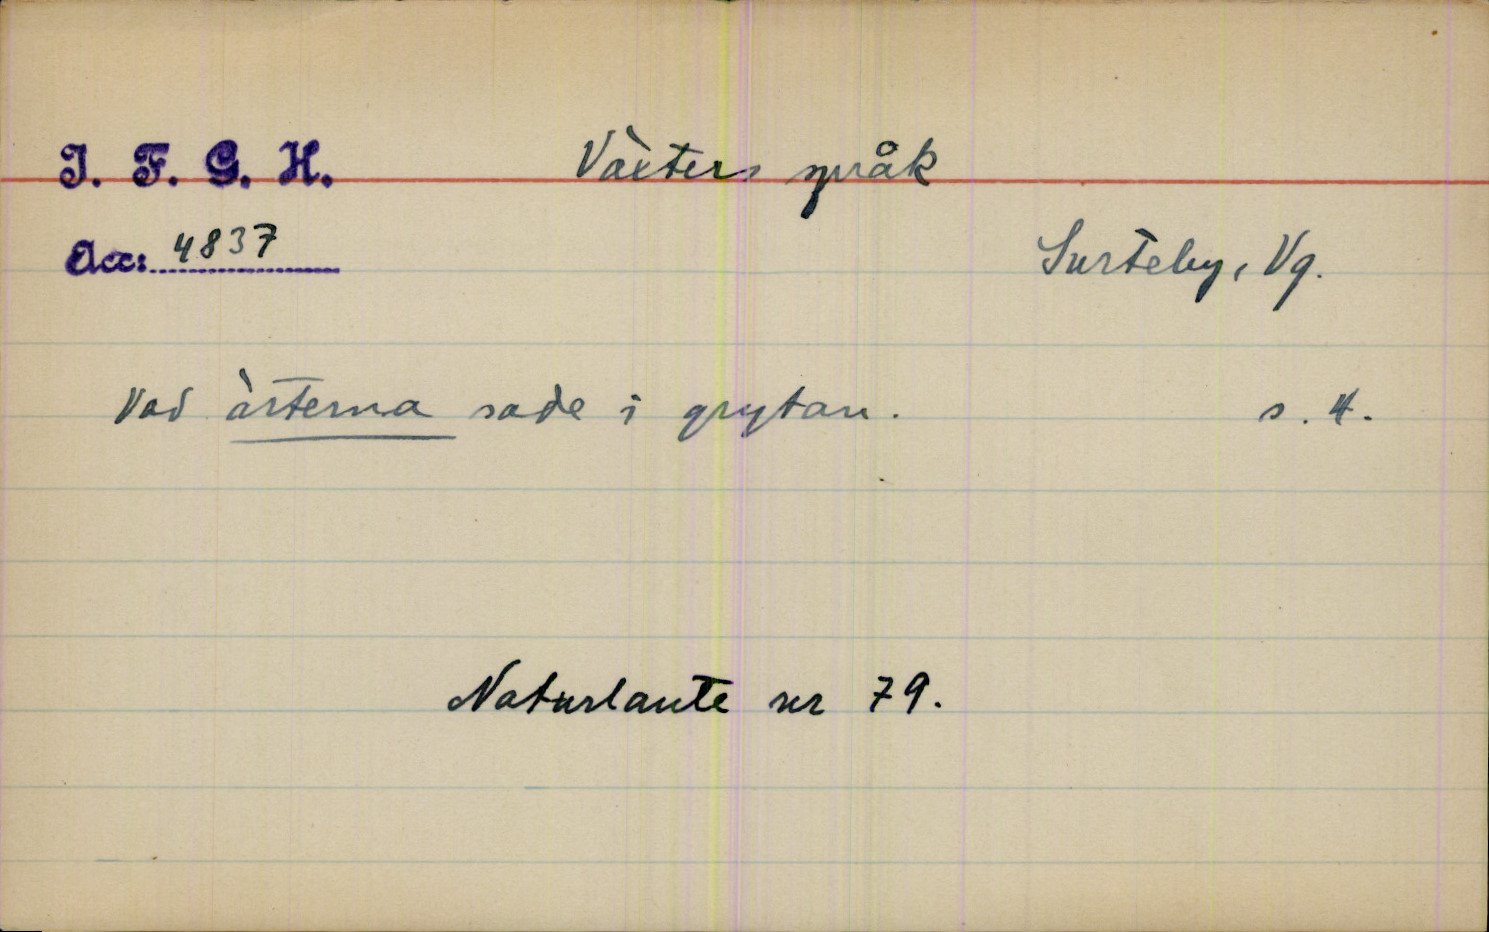 I. F. G. H.
Växters språk
Acc: 4837
Surteby, Vg.
Vad ärterna sade i grytan. s. 4.
Naturlaute nr 79.